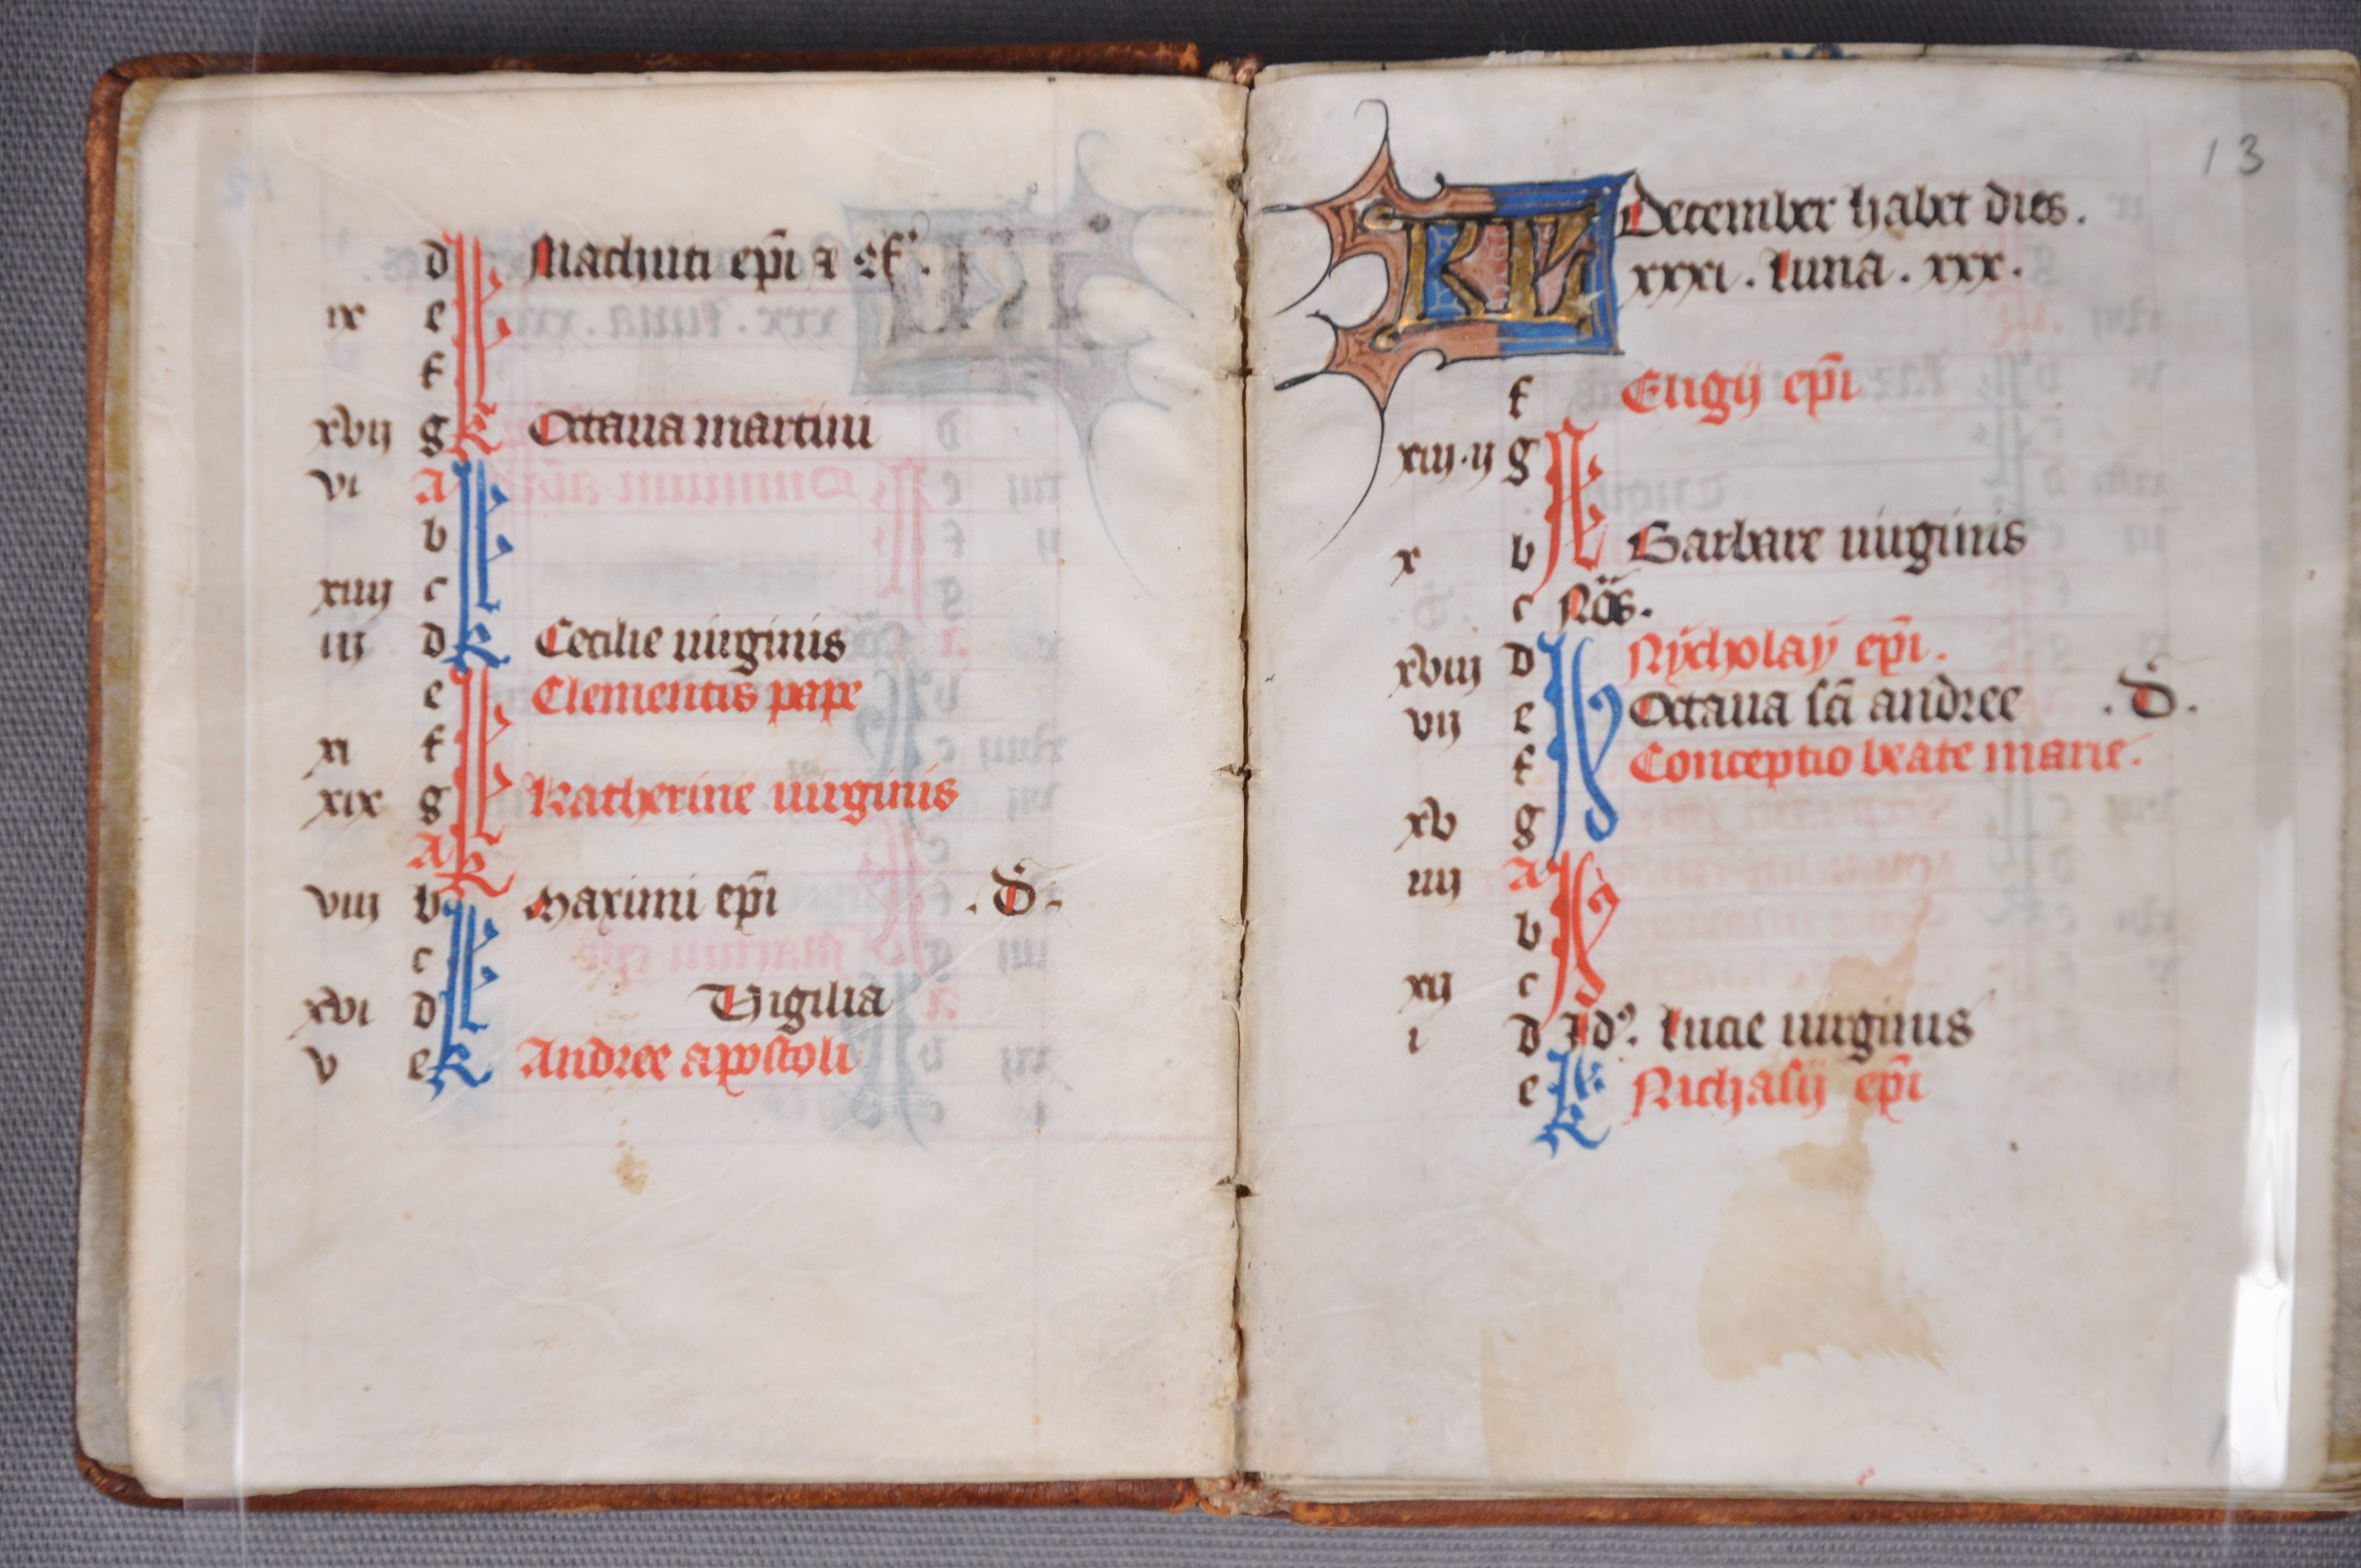 d Machuti ep̄i ⁊ ↄf̉.
ix e
f
xvij g k Octaua martini
vi A
b
xiiij c
iij d k Cecilie uirginis
e Clementis pape
xi f
xix g Katherine uirginis
A k
viij b Maximi ep̄i .D.
c
xvi d Vigilia
v e k Andree apostoli
13
KL December habet dies.
xxxi. luna. xxx.
f Eligij ep̄i
xiij.ij g
x b Barbare uirginis
c Nōs.
xviij d Nycholaÿ ep̄i.
vij e Octaua sc̄i andree .D.
f Conceptio beate marie.
xv g
iiij A
b
xij c
i d Id9. Lucie uirginis
e k Nichasij ep̄i